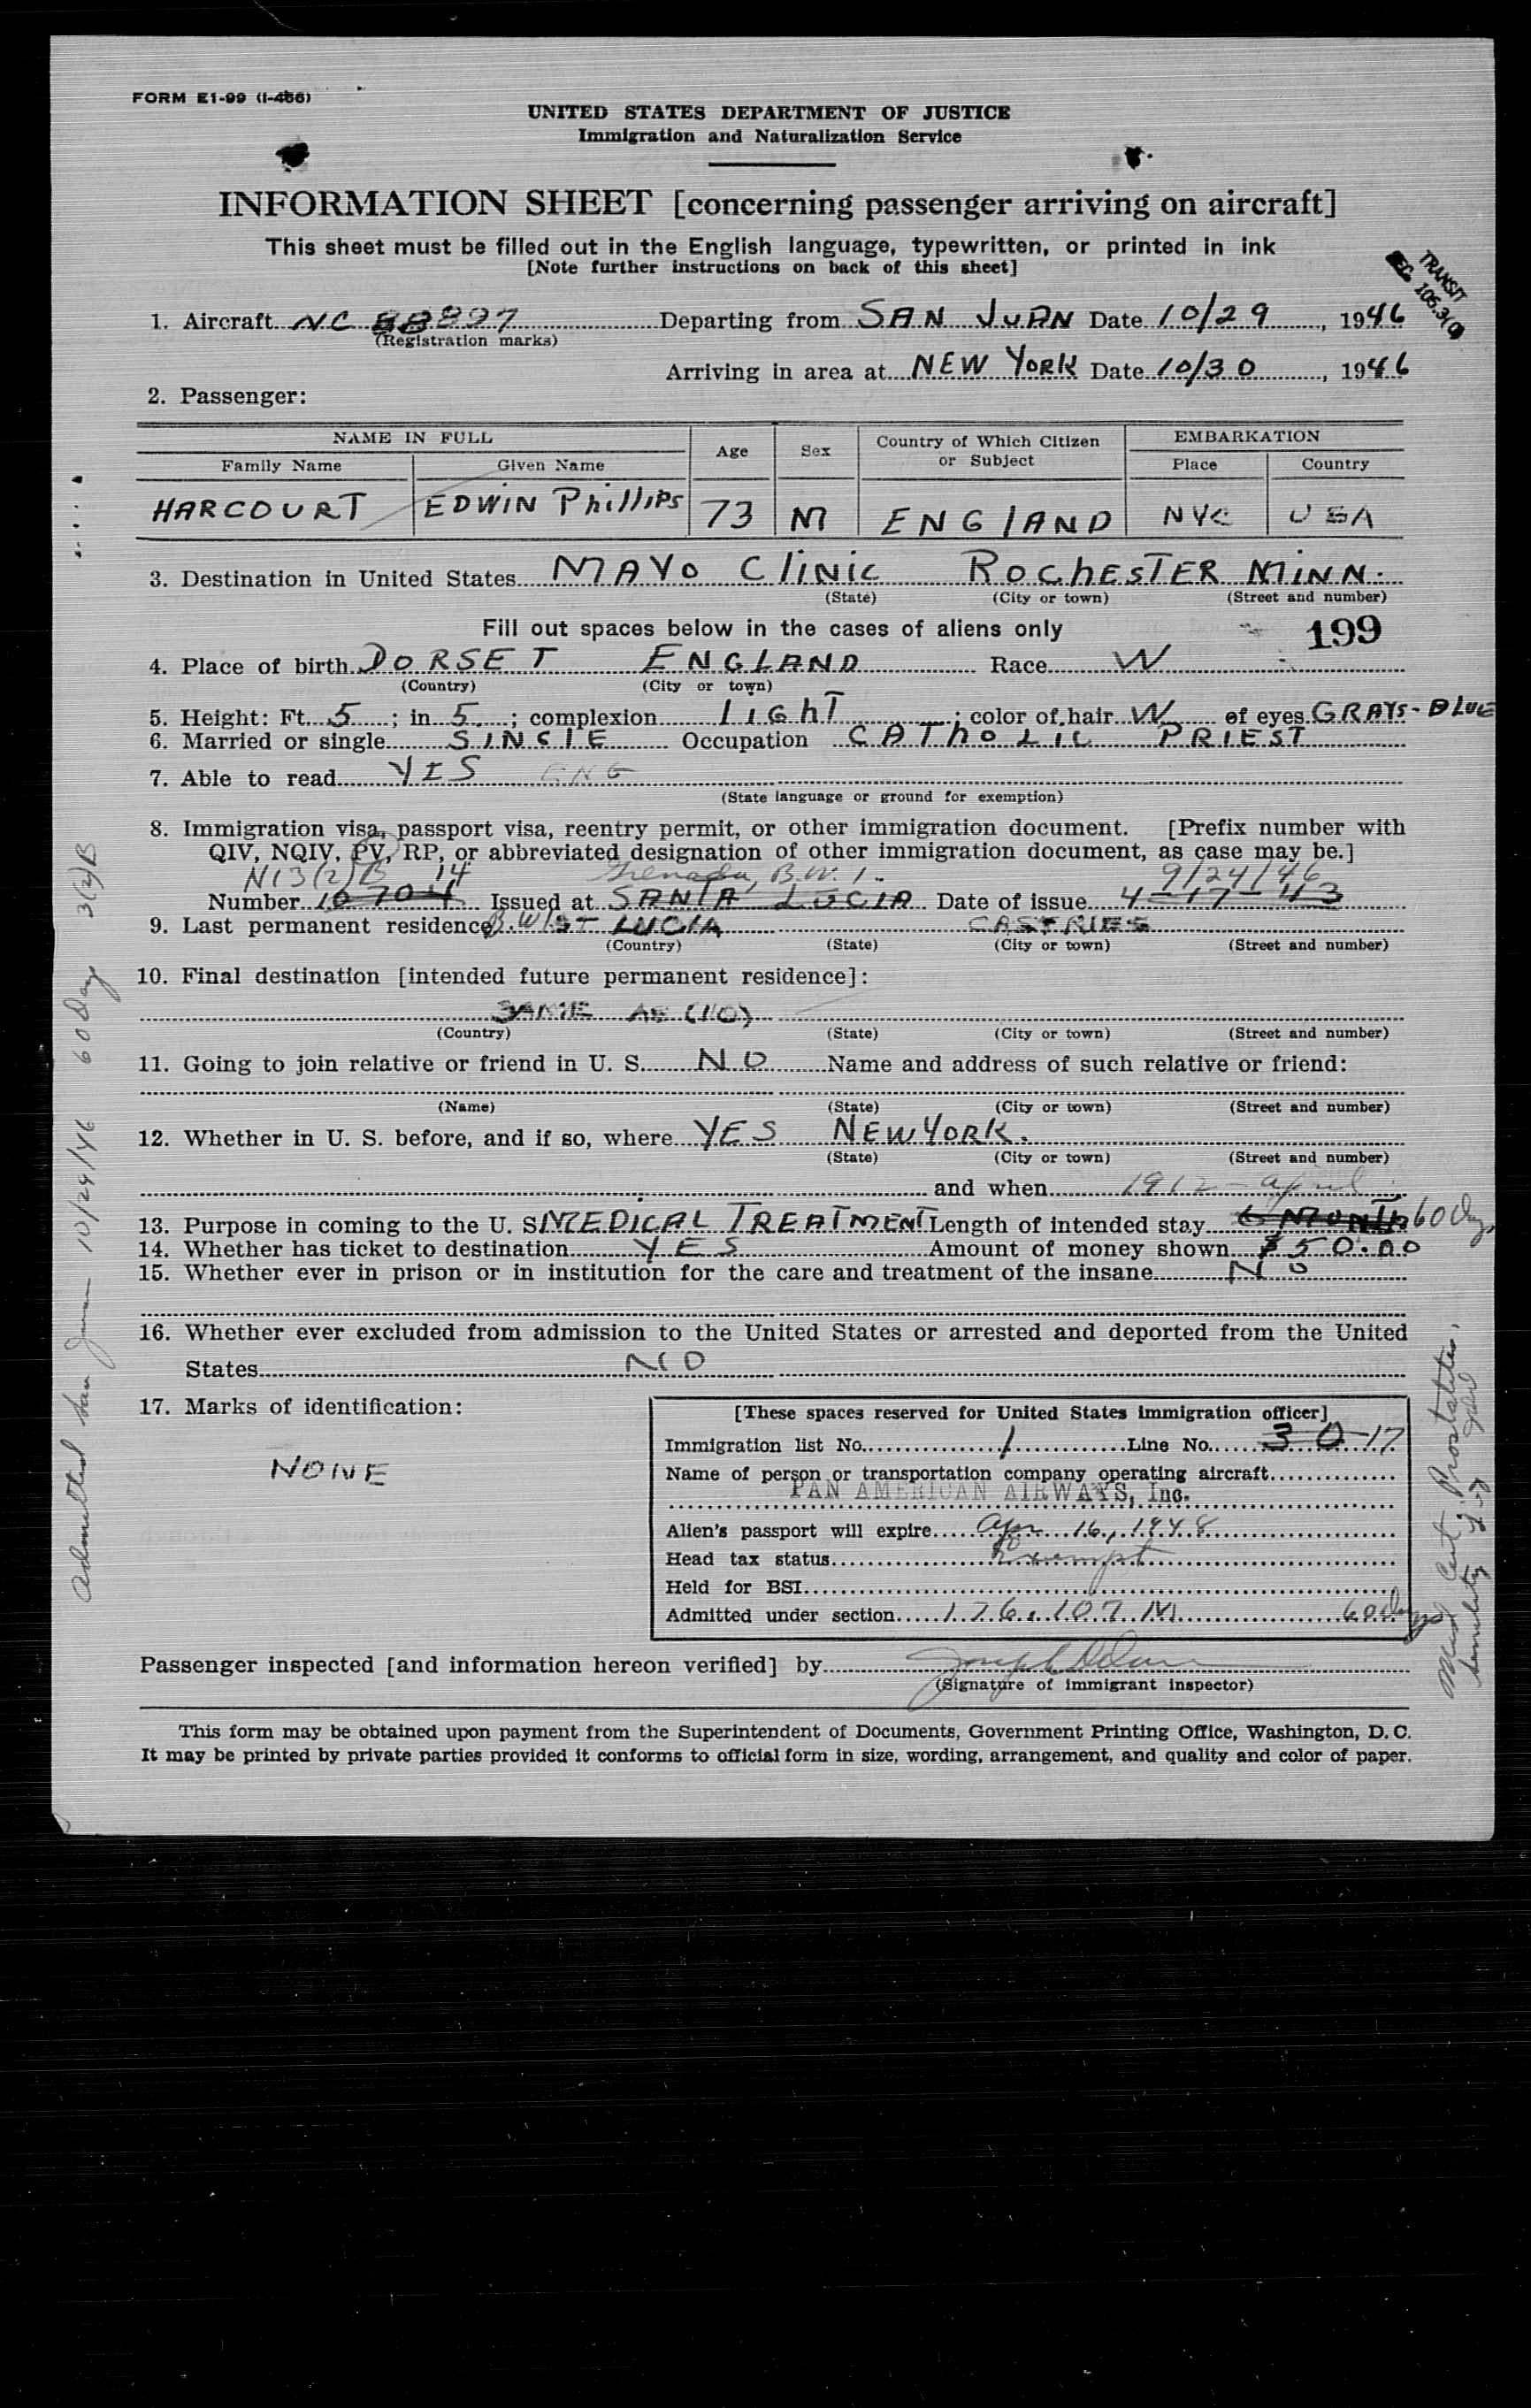 FORM E1-99 (I-466)
UNITED STATES DEPARTMENT OF JUSTICE
Immigration and Naturalization Service
INFORMATION SHEET [concerning passenger arriving on aircraft]
This sheet must be filled out in the English language, typewritten, or printed in ink
[Note further instructions on back of this sheet]
TRANSIT
SEC. 105.3(C)
1. Aircraft NC 88897 Departing from SAN JUAN Date 10/29, 1946
(Registration marks)
Arriving in area at NEW YORK Date 10/30, 1946
2. Passenger:
NAME IN FULL Age Sex Country of Which Citizen or Subject EMBARKATION
Family Name Given Name Place Country
HARCOURT EDWIN Phillips 73 M ENGlAND NYC USA
3. Destination in United States MAYO CliNic ROChESTER MINN.
(State) (City or town) (Street and number)
Fill out spaces below in the cases of aliens only
199
4. Place of birth DORSET ENGLAND Race W
(Country) (City or town)
5. Height: Ft. 5; in 5; complexion lIGhT; color of hair W of eyes GRAYS-BLUE
6. Married or single SINGlE Occupation CATholic PRIEST
7. Able to read YES ENG
(State language or ground for exemption)
8. Immigration visa, passport visa, reentry permit, or other immigration document. [Prefix number with
QIV, NQIV, PV, RP, or abbreviated designation of other immigration document, as case may be.]
N13(2)B 14 Grenada, B.W.I. 9/24/46
Number 10704 Issued at SANTA LUCIA Date of issue 4-17-43
9. Last permanent residence B.W.I ST LUCIA CASTRIES
(Country) (State) (City or town) (Street and number)
10. Final destination [intended future permanent residence]:
SAME AS (10)
(Country) (State) (City or town) (Street and number)
11. Going to join relative or friend in U. S. NO Name and address of such relative or friend:
(Name) (State) (City or town) (Street and number)
12. Whether in U. S. before, and if so, where YES NEW YORK.
(State) (City or town) (Street and number)
and when 1912 - april
13. Purpose in coming to the U. S. MEDICAL TREATMENT Length of intended stay 6 MONTh 60 days
14. Whether has ticket to destination YES Amount of money shown $50.00
15. Whether ever in prison or in institution for the care and treatment of the insane NO
16. Whether ever excluded from admission to the United States or arrested and deported from the United
States NO
17. Marks of identification:
NONE
[These spaces reserved for United States immigration officer]
Immigration list No. 1 Line No. 30 17
Name of person or transportation company operating aircraft
PAN AMERICAN AIRWAYS, Inc.
Alien's passport will expire Apr 16, 1948
Head tax status Exempt
Held for BSI
Admitted under section 176.107 60 days
Passenger inspected [and information hereon verified] by
(Signature of immigrant inspector)
This form may be obtained upon payment from the Superintendent of Documents, Government Printing Office, Washington, D. C.
It may be printed by private parties provided it conforms to official form in size, wording, arrangement, and quality and color of paper.
Admitted San Juan 10/29/46 60 days 3(2)B
Med Cert. Prostatitis,
senility